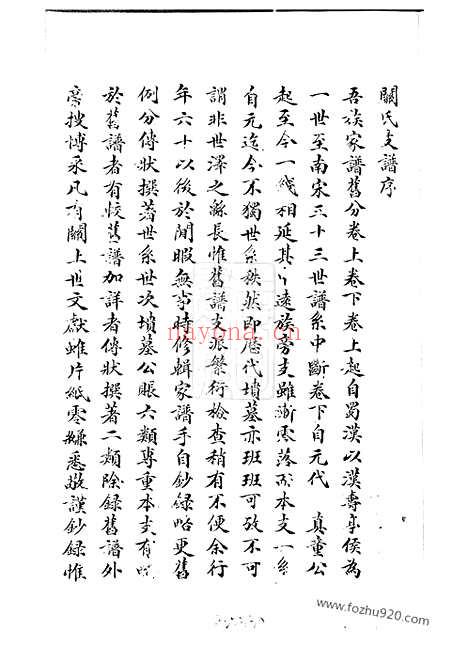 關氏支譜序
吾族家譜舊分卷上卷下卷上起自蜀漢以漢壽亭侯為
一世至南宋三十三世譜系中斷卷下自元代 真童公
起至今一綫相延其遠族旁支雖漸零落而本支一系
自元迄今不獨世系秩然即歷代墳墓亦班班可攷不可
謂非世澤之緜長惟舊譜支派繁衍檢查稍有不便余行
年六十以後於閒暇無事時修輯家譜手自鈔錄略更舊
例分傳狀撰著世系世次墳墓公賬六類專重本支有略
於舊譜者有較舊譜加詳者傳狀撰著二類除錄舊譜外
旁搜博采凡有關上世文獻雖片紙零縑悉敬謹鈔錄惟
nayona.cn
www.fozhu920.com